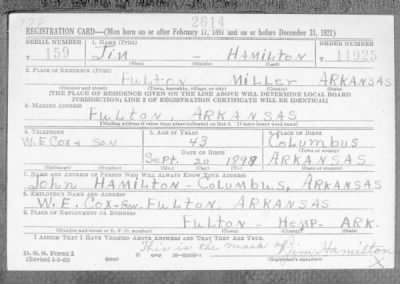 2614
REGISTRATION CARD—(Men born on or after February 17, 1897 and on or before December 31, 1921)
SERIAL NUMBER 1. NAME (Print) ORDER NUMBER
T 159 Jim - HAMILTON T 11925
(First) (Middle) (Last)
2. PLACE OF RESIDENCE (Print)
Fulton Miller ARKANSAS
(Number and street) (Town, township, village, or city) (County) (State)
[THE PLACE OF RESIDENCE GIVEN ON THE LINE ABOVE WILL DETERMINE LOCAL BOARD
JURISDICTION; LINE 2 OF REGISTRATION CERTIFICATE WILL BE IDENTICAL]
3. MAILING ADDRESS
Fulton, ARKANSAS
[Mailing address if other than place indicated on line 2. If same insert word same]
4. TELEPHONE 5. AGE IN YEARS 6. PLACE OF BIRTH
W.E. Cox & Son 43 Columbus
DATE OF BIRTH (Town or county)
Sept. 20 1898 ARKANSAS
(Exchange) (Number) (Mo.) (Day) (Yr.) (State or country)
7. NAME AND ADDRESS OF PERSON WHO WILL ALWAYS KNOW YOUR ADDRESS
John HAMILTON - Columbus, ARKANSAS
8. EMPLOYER'S NAME AND ADDRESS
W. E. Cox & Son. Fulton, ARKANSAS
9. PLACE OF EMPLOYMENT OR BUSINESS
Fulton - Hemp - ARK.
(Number and street or R. F. D. number) (Town) (County) (State)
I AFFIRM THAT I HAVE VERIFIED ABOVE ANSWERS AND THAT THEY ARE TRUE.
This is the mark of Jim Hamilton
D. S. S. Form 1
(Revised 1-1-42) GPO 16—21630-1 (Registrant's signature)
X